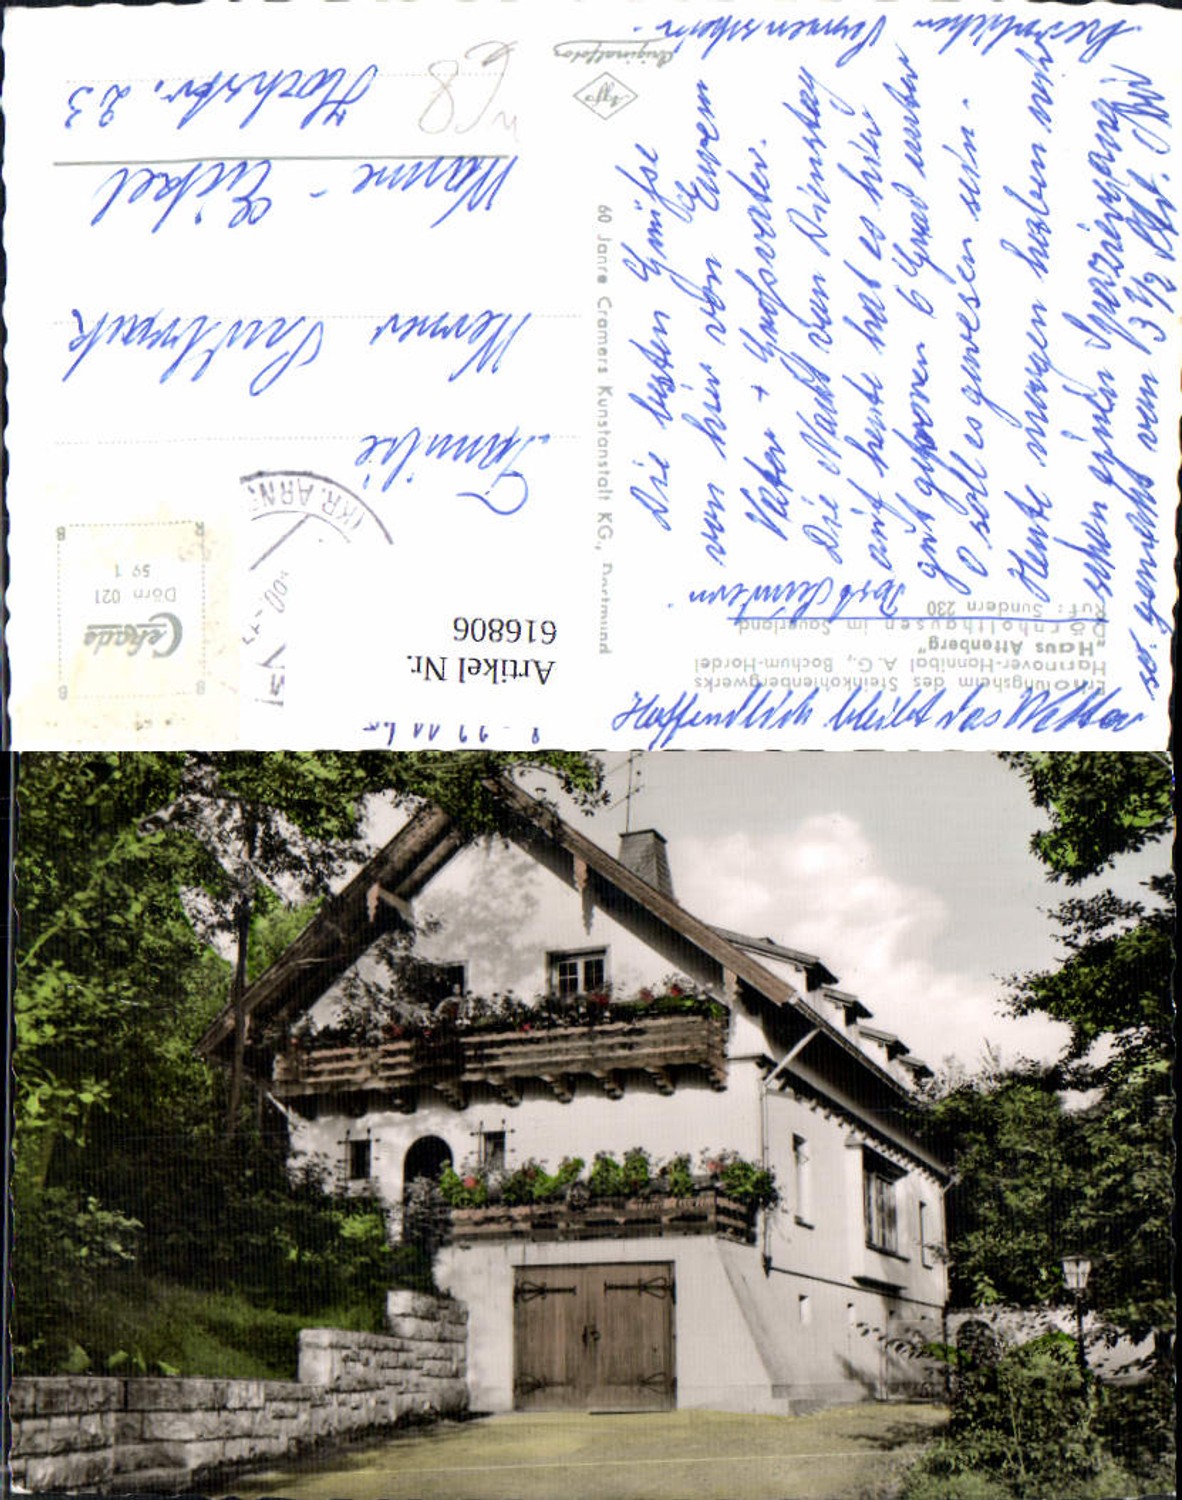 Erholungsheim des Steinkohlenbergwerks
Hannover-Hannibal A.G., Bochum-Hordel
"Haus Altenberg"
Dörnholthausen im Sauerland
Ruf: Sundern 230
Post Sundern.
Die besten Grüße
von hier von Eurem
Vater + Großvater.
Die Nacht von Dienstag
auf heute hat es hier
gut gefroren 6 Grad unter
0 soll es gewesen sein.
Heute morgen haben wir
schon einen Spaziergang
gemacht von 3 1/2 Std. Bei
herrlichem Sonnenschein.
Hoffentlich bleibt das Wetter
so.
60 Jahre Cramers Kunstanstalt KG., Dortmund
Agfa
Originalfoto
Artikel Nr.
616806
(KR. ARN
Cekade
Dörn 021
59 1
B
B
B
Familie
Werner
Wanne-Eickel
Hochstr. 23